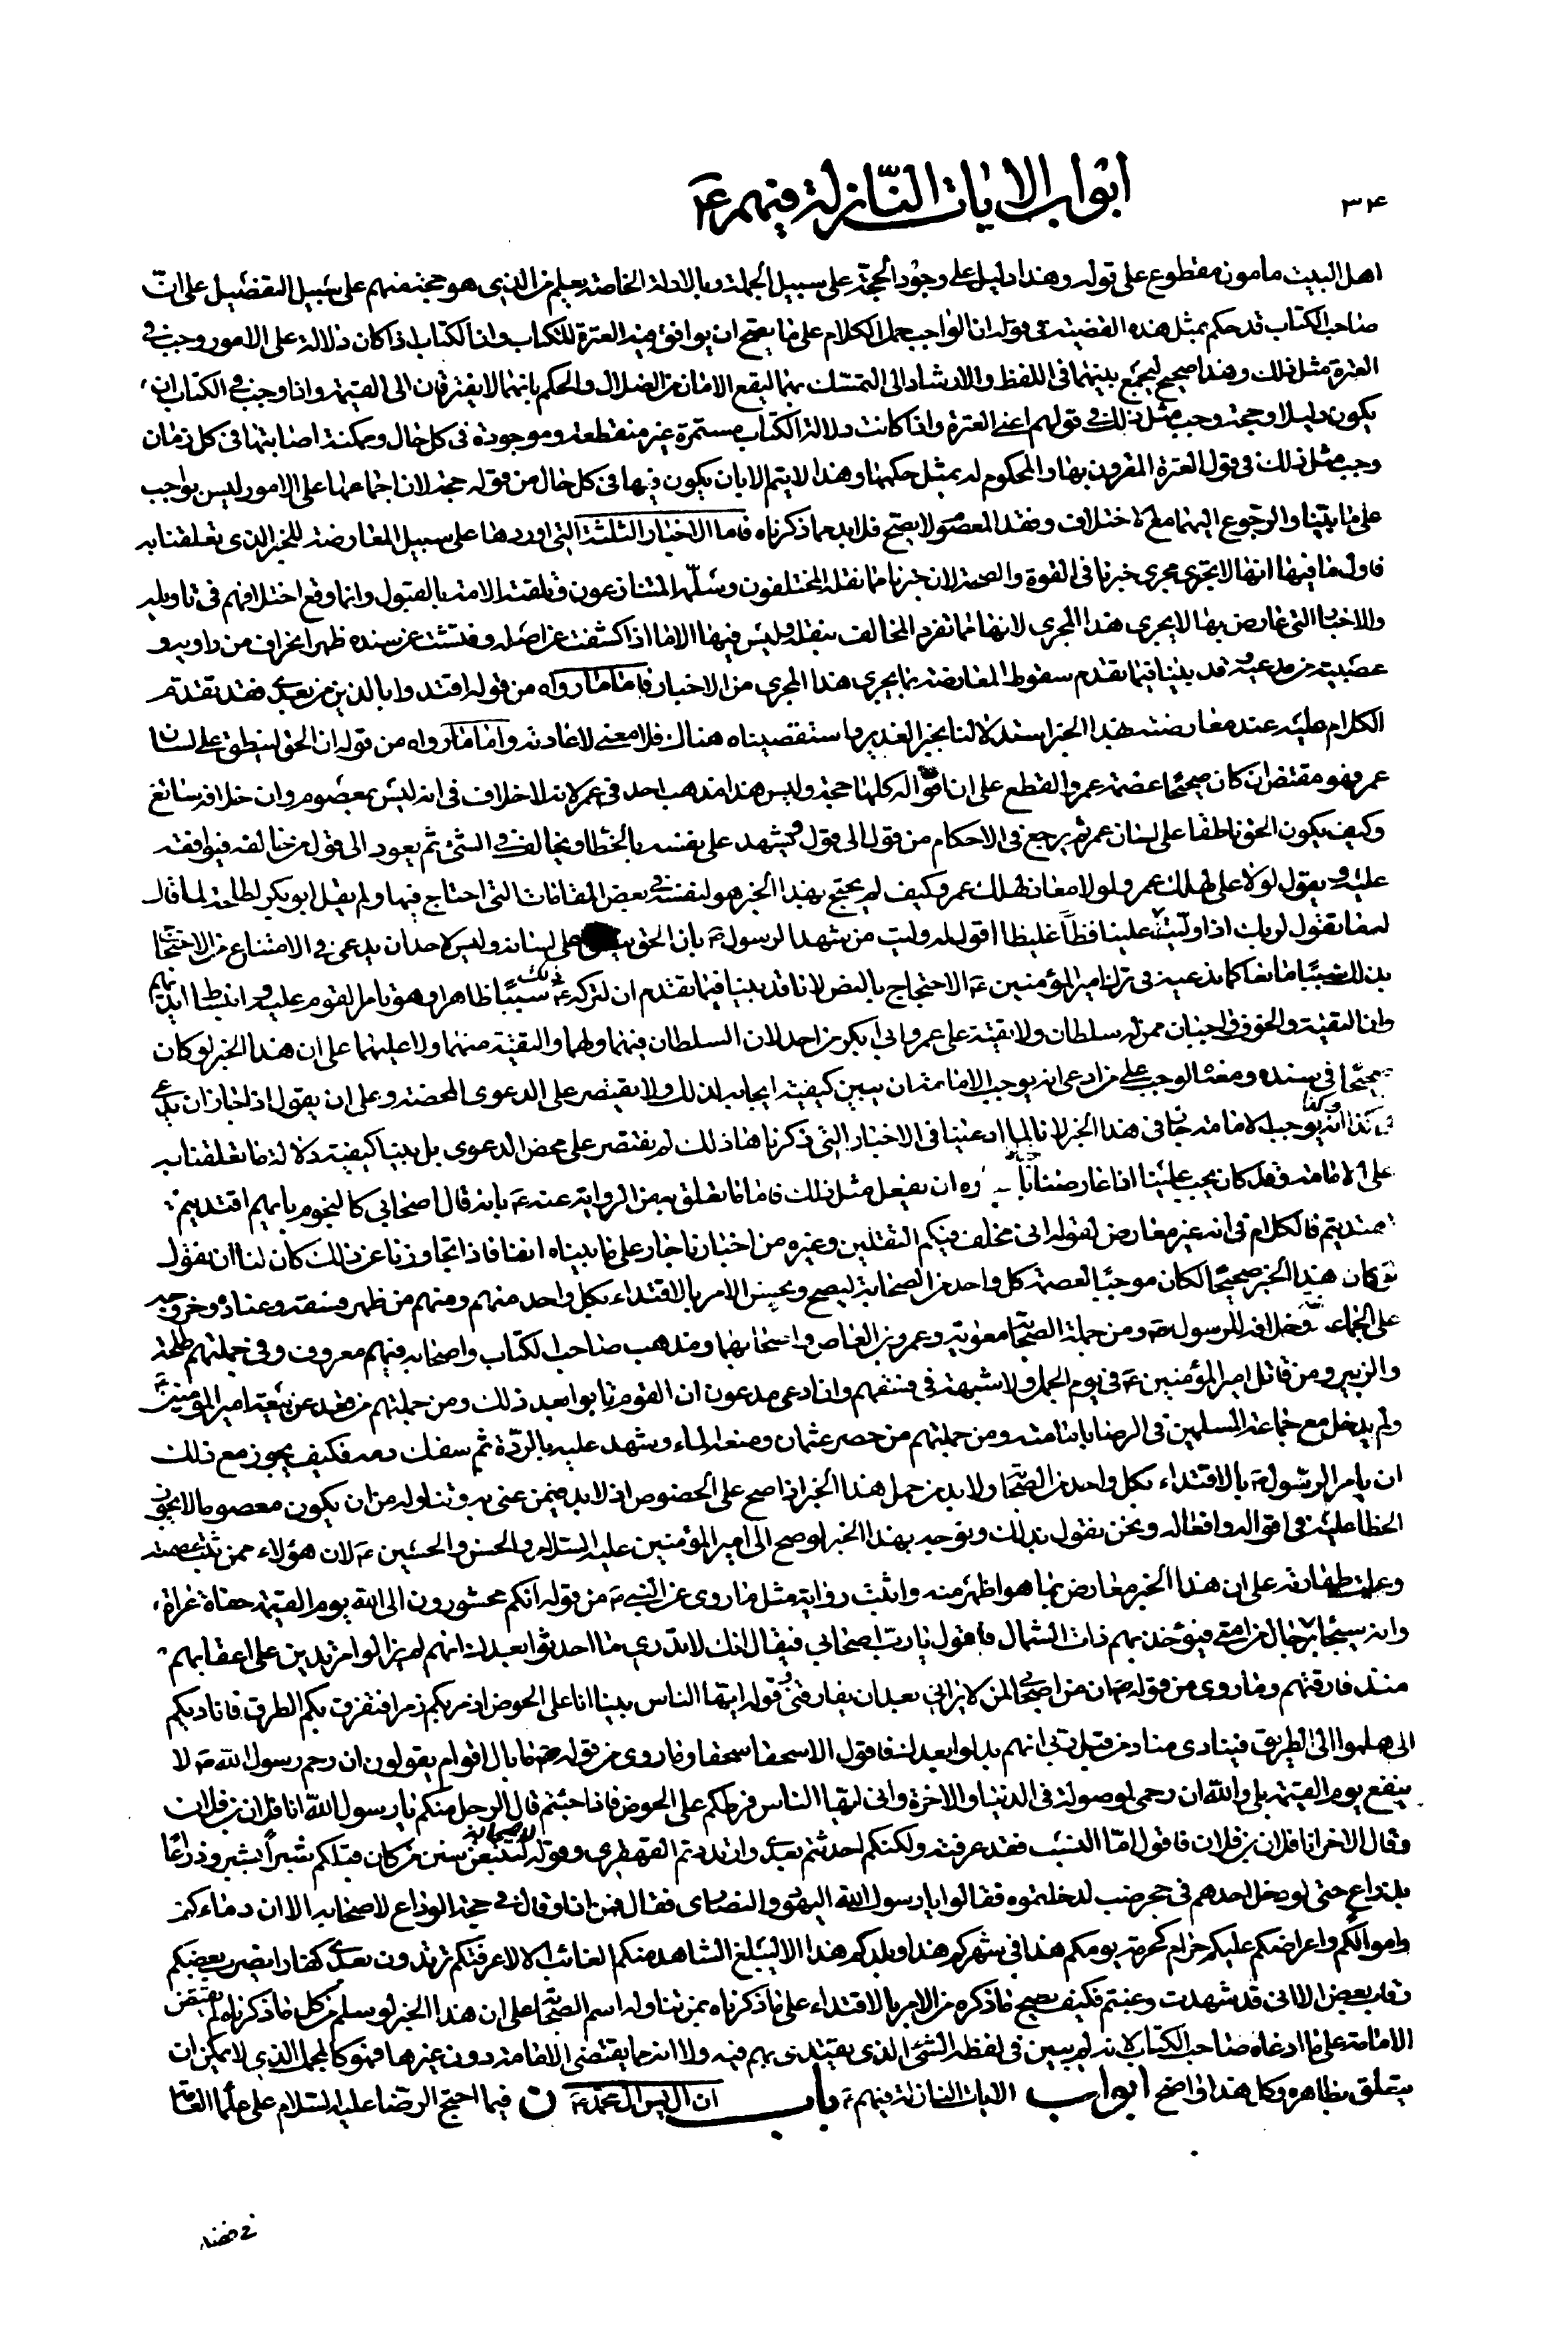 ٣٤
ابواب الايات النّازلة فيهم ع
اهل البيت مامون مقطوع على قوله وهذا دليل على وجود الحجّة على سبيل الجملة وبالادلة الخاصة يعلم من الذى هو حجة منهم على سبيل التفضيل على انّ
صاحب الكتاب قد حكم بمثل هذه القضية فى قوله ان الواجب حمل الكلام على ما يصح ان يوافق فيه العترة للكتاب وان الكتاب اذا كان دلالة على الامور وجب فى
العترة مثل ذلك وهذا صحيح ليجمع بينهما فى اللفظ والارشاد الى التمسّك بهما ليقع الامان من الضلال والحكم بانهما لا يفترقان الى القيمة واذا وجب فى الكتاب ان
يكون دليلا وحجة وجب مثل ذلك فى قولهم اعنى العترة واذا كانت دلالة الكتاب مستمرة غير منقطعة وموجودة فى كل حال وممكنة اصابتها فى كل زمان
وجب مثل ذلك فى قول العترة المقرون بها والمحكوم له بمثل حكمها وهذا لا يتم الا بان يكون فيها فى كل حال من قوله حجة لان اجماعها على الامور ليس بواجب
على ما بيّنا والرجوع اليهما مع الاختلاف وفقد المعصوم لا يصح فلا بد مما ذكرناه فاما الاخبار الثلثة التى اوردها على سبيل المعارضة للخبر الذى تعلقنا به
فاول ما فيها انها لا تجرى مجرى خبرنا فى القوة والصحة لان خبرنا مما نقله المختلفون وسلّمه المتنازعون وتلقته الامة بالقبول وانما وقع اختلافهم فى تاويله
والاخبار التى عارض بها لا يجرى هذا المجرى لانها مما تفرد المخالف بنقله وليس فيها الا ما اذا كشفت عن اصله وفتشت عن سنده ظهر انحراف من راويه و
عصبية من مدعيه وقد بينا فيما تقدم سقوط المعارضة بما يجرى هذا المجرى من الاخبار فاما ما رواه من قوله اقتدوا بالذين من بعدى فقد تقدم
الكلام عليه عند معارضته بهذا الخبر استدلالنا بخبر الغدير واستقصيناه هناك فلا معنى لاعادته واما ما رواه من قوله ان الحق لينطق على لسان
عمر فهو مقتض ان كان صحيحا عصمة عمر والقطع على ان اقواله كلها حجة وليس هذا مذهب احد فى عمر لانه لا خلاف فى انه ليس بمعصوم وان خلافه سائغ
وكيف يكون الحق ناطقا على لسان عمر ثم يرجع فى الاحكام من قول الى قول ويشهد على نفسه بالخطا ويخالف فى الشئ ثم يعود الى قول من خالفه فيوافقه
عليه ويقول لولا على لهلك عمر ولولا معاذ لهلك عمر وكيف لم يحتج بهذا الخبر هو لنفسه فى بعض المقامات التى احتاج فيها ولم يقل ابو بكر لطلحة لما قال
له ما تقول لربك اذا وليت علينا فظّا غليظا اقول له وليت من شهد الرسول ص بان الحق على لسانه وليس لاحد ان يدعى فى الامتناع من الاحتجاج
بذلك سببا مانعا كما ندعيه فى ترك امير المؤمنين ع الاحتجاج بالنص لانا قد بينا فيما تقدم ان لتركه ع ذلك سببا ظاهرا وهو تامر القوم عليه وانبساط ايديهم
وان التقية والخوف واجبان ممن له سلطان ولا تقية على عمر وابى بكر من احد لان السلطان فيهما ولهما والتقية منهما ولا عليهما على ان هذا الخبر لو كان
صحيحا فى سنده ومعناه لوجب على من ادعى انه يوجب الامامة ان يبين كيفية ايجابه لذلك ولا يقتصر على الدعوى المحضة وعلى ان يقول اذا جاز ان يدعى
فى كذا وكذا انه يوجب الامامة جاز فى هذا الخبر لانا لما ادعينا فى الاخبار التى ذكرناها ذلك لم نقتصر على محض الدعوى بل بينا كيفية دلالة ما تعلقنا به
على الامامة وقد كان يجب عليه اذا عارضنا ان يفعل مثل ذلك فاما ما تعلق به من الرواية عنه ع بانه قال اصحابى كالنجوم بايهم اقتديتم
اهتديتم فالكلام فى انه غير معارض لقوله انى مخلف فيكم الثقلين وغيره من اخبارنا جار على ما بيناه انفا فاذا تجاوزنا عن ذلك كان لنا ان نقول
لو كان هذا الخبر صحيحا لكان موجبا لعصمة كل واحد من الصحابة ليصح ويحسن الامر بالاقتداء بكل واحد منهم ومنهم من ظهر فسقه وعناده وخروجه
على الجماعة وخلافه للرسول ص ومن جملة الصحابة معوية وعمرو بن العاص واصحابهما ومذهب صاحب الكتاب واصحابه فيهم معروف وفى جملتهم طلحة
والزبير ومن قاتل امير المؤمنين ع فى يوم الجمل ولا شبهة فى فسقهم وان ادعى مدعون ان القوم تابوا بعد ذلك ومن جملتهم من قعد عن بيعة امير المؤمنين ع
ولم يدخل مع جماعة المسلمين فى الرضا بامامته ومن جملتهم من حصر عثمان ومنعه الماء وشهد عليه بالردّة ثم سفك دمه فكيف يجوز مع ذلك
ان يامر الرسول ص بالاقتداء بكل واحد من الصحابة ولا بد من حمل هذا الخبر اذا صح على الخصوص اذ لا بد فيمن عنى به وتناوله من ان يكون معصوما لا يجوز
الخطا عليه فى اقواله وافعاله ونحن نقول بذلك ونوجه بهذا الخبر لو صح الى امير المؤمنين عليه السلام والحسن والحسين ع لان هؤلاء ممن ثبت عصمته
وعلمت طهارته على ان هذا الخبر معارض بما هو اظهر منه واثبت رواية مثل ما روى عن النبى ص من قوله انكم محشورون الى الله يوم القيمة حفاة عراة
وانه سيجاء برجال من امتى فيؤخذ بهم ذات الشمال فاقول يا رب اصحابى فيقال انك لا تدرى ما احدثوا بعدك انهم لم يزالوا مرتدين على اعقابهم
منذ فارقتهم وما روى من قوله ص ان من اصحابى لمن لا يرانى بعد ان يفارقنى وقوله ايها الناس بينا انا على الحوض اذ مر بكم زمرا فتفرق بكم الطرق فاناديكم
الى هلموا الى الطريق فينادى مناد من قبل ربى انهم بدلوا بعدك فاقول الا سحقا سحقا وما روى من قوله ص ما بال اقوام يقولون ان رحم رسول الله ص لا
ينفع يوم القيمة بلى والله ان رحمى لموصولة فى الدنيا والاخرة وانى ايها الناس فرطكم على الحوض فاذا جئتم قال الرجل منكم يا رسول الله انا فلان بن فلان
وقال الاخر انا فلان بن فلان فاقول امّا النسب فقد عرفته ولكنكم احدثتم بعدى وارتددتم القهقرى وقوله لاصحابه لتتبعن سنن من كان قبلكم شبرا بشبر وذراعا
بذراع حتى لو دخل احدهم فى جحر ضب لدخلتموه فقالوا يا رسول الله اليهود والنصارى فقال فمن اذا وقال فى حجة الوداع لاصحابه الا ان دماءكم
واموالكم واعراضكم عليكم حرام كحرمة يومكم هذا فى شهركم هذا وبلدكم هذا الا ليبلغ الشاهد منكم الغائب الا لاعرفنكم ترتدون بعدى كفارا يضرب بعضكم
رقاب بعض الا انى قد شهدت وغبتم فكيف يصح ما ذكره من الامر بالاقتداء على ما ذكرناه بمن تناوله اسم الصحابة على ان هذا الخبر لو سلم من كل ما ذكرناه لم يقتض
الامامة على ما ادعاه صاحب الكتاب لانه لم يبين فى لفظه الشئ الذى يقتدى بهم فيه ولا انه مما يقتضى الامامة دون غيرها فهو كالمجمل الذى لا يمكن ان
يتعلق بظاهره وكل هذا واضح ابواب الايات النازلة فيهم ع باب ان ال يس ال محمد ع ن فيما احتج الرضا عليه السلام على علماء العامة
فى فضل